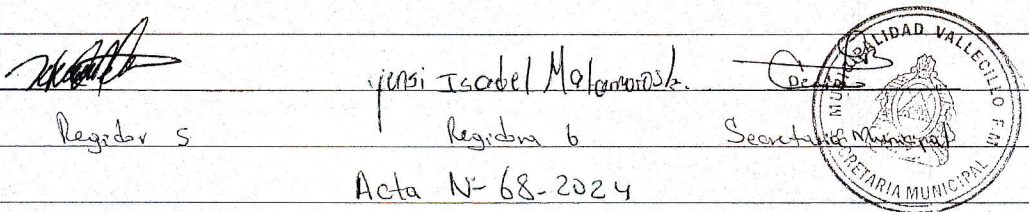 yensi Isabel Matamoros
Regidor 5 Regidora 6 Secretaria Municipal
MUNICIPALIDAD VALLECILLO F.M
SECRETARIA MUNICIPAL
Acta N- 68-2024